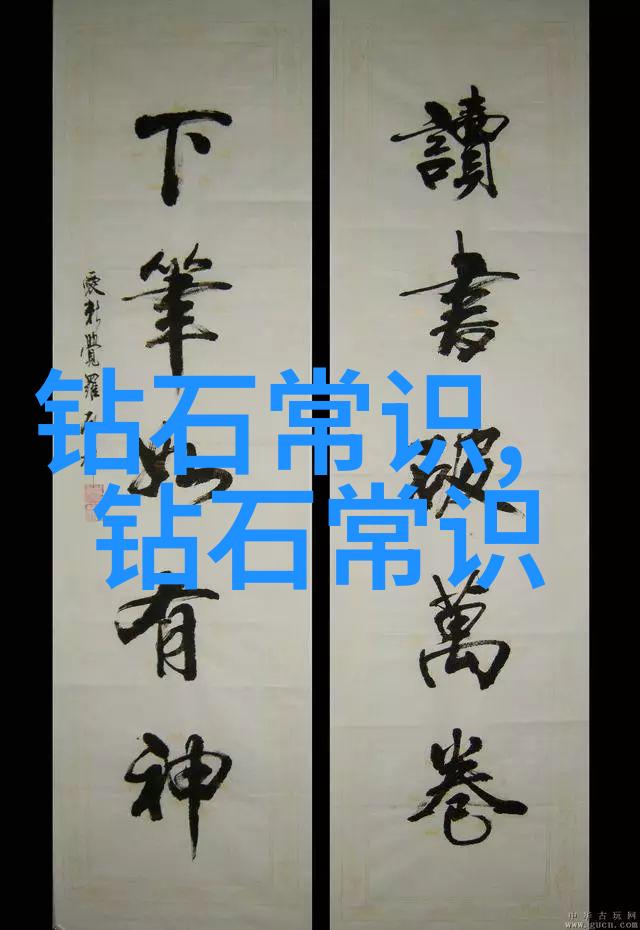 讀書破萬卷
下筆如有神
愛新覺羅
钻石常识,
钻石常识
中华古玩网
www.gucn.com